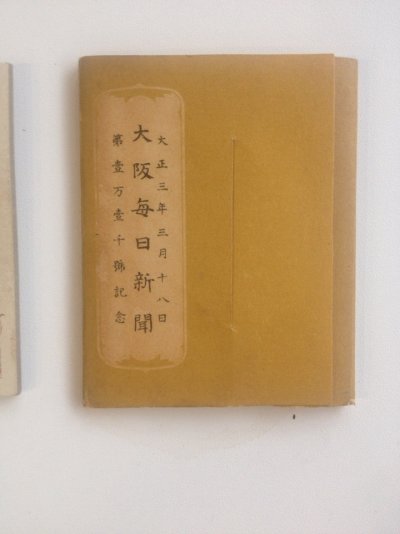 大正三年三月十八日
大阪毎日新聞
第壹万壹千號記念